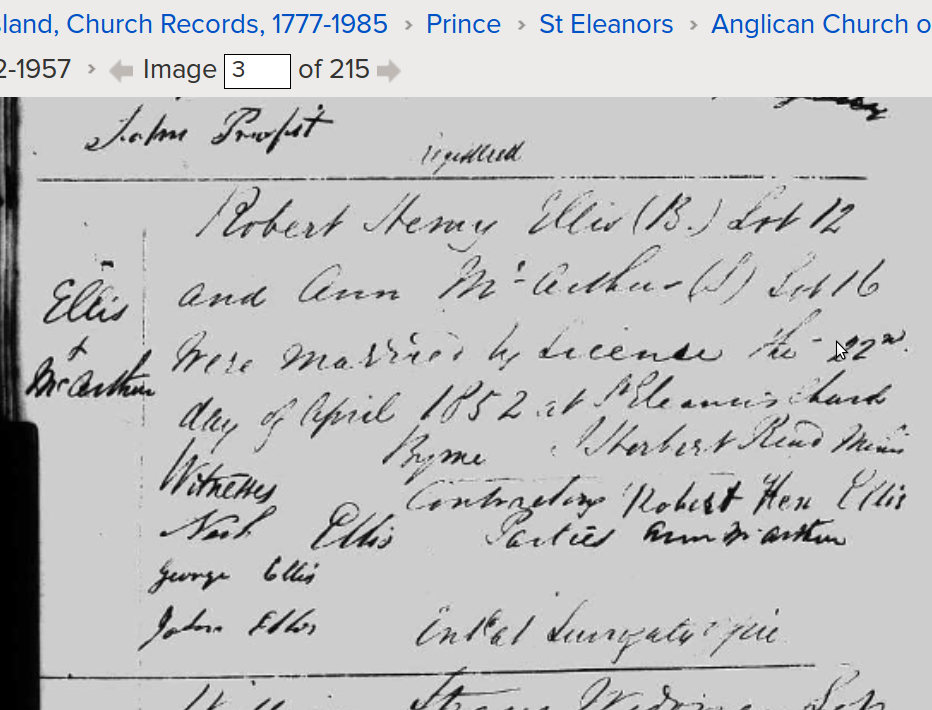 sland, Church Records, 1777-1985 › Prince › St Eleanors › Anglican Church o
2-1957 › Image 3 of 215
John Profit
registered
Robert Henry Ellis (B.) Lot 12
Ellis + McArthur
and Ann Mc Arthur (S) Lot 16
were married by License the 22nd
day of April 1852 at St Eleanors Church
By me Herbert Read Minis
Witnesses
Contracting Parties
Robert Hen Ellis
Ann McArthur
Ellis
George Ellis
John Ellis
Surrogate